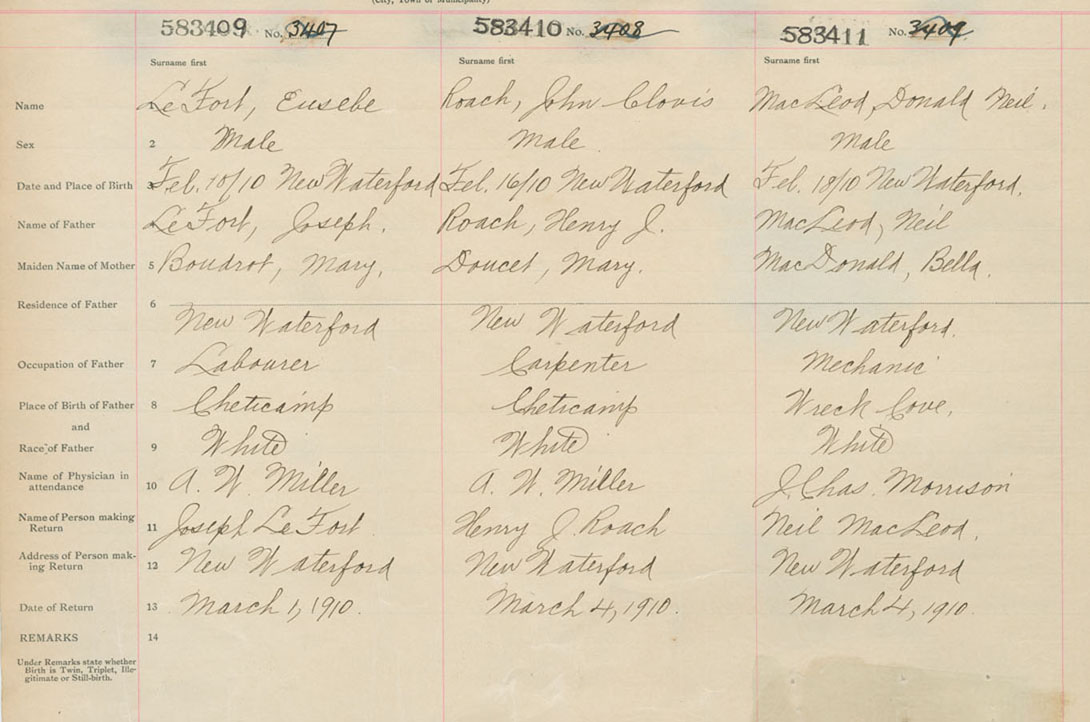 (City, Town or Municipality)
583409 No. 3407 583410 No. 3408 583411 No. 3409
Surname first Surname first Surname first
Name LeFort, Eusebe Roach, John Clovis MacLeod, Donald Neil.
Sex 2 Male Male Male
Date and Place of Birth 3 Feb. 10/10 New Waterford Feb. 16/10 New Waterford Feb. 18/10 New Waterford.
Name of Father LeFort, Joseph. Roach, Henry J. MacLeod, Neil
Maiden Name of Mother 5 Boudrot, Mary. Doucet, Mary. MacDonald, Bella.
Residence of Father 6 New Waterford New Waterford New Waterford.
Occupation of Father 7 Labourer Carpenter Mechanic
Place of Birth of Father 8 Cheticamp Cheticamp Wreck Cove.
and
Race of Father 9 White White White
Name of Physician in
attendance 10 A. W. Miller A. W. Miller J. Chas. Morrison
Name of Person making
Return 11 Joseph LeFort Henry J. Roach Neil MacLeod.
Address of Person mak-
ing Return 12 New Waterford New Waterford New Waterford
Date of Return 13 March 1, 1910. March 4, 1910. March 4, 1910.
REMARKS 14
Under Remarks state whether
Birth is Twin, Triplet, Ille-
gitimate or Still-birth.